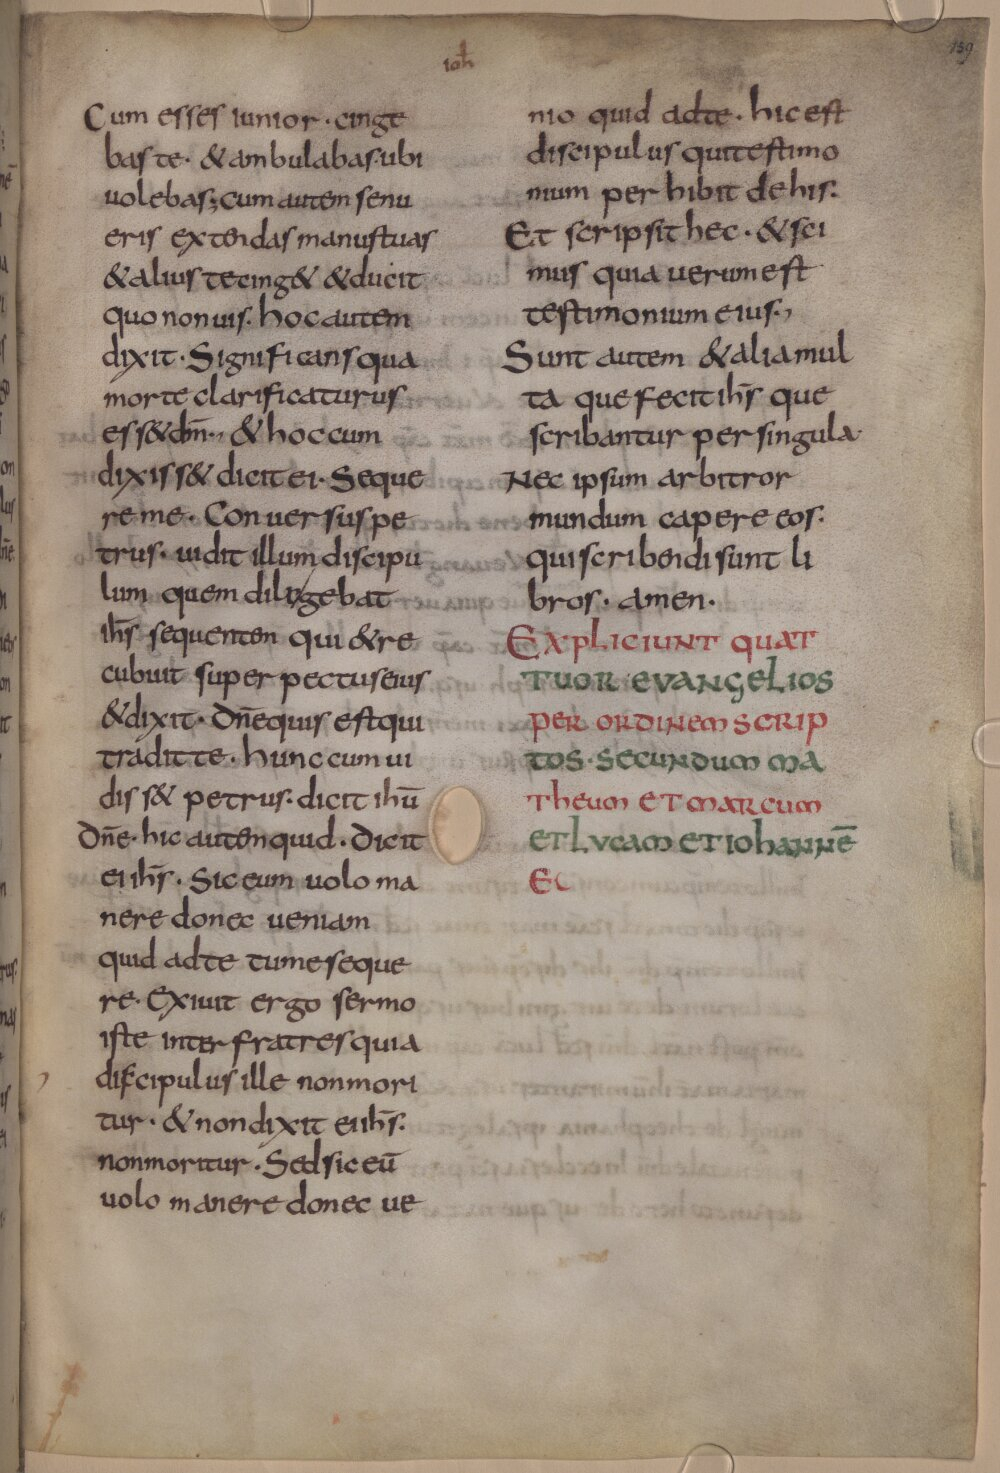 ioh
159
Cum esses iunior · cinge
bas te · & ambulabas · ubi
uolebas; cum autem senu
eris extendas manus tuas
& alius te cing& & ducit
quo non uis · hoc autem
dixit · Significans qua
morte clarificaturus
ess& dm̄ ·, & hoc cum
dixiss& dicit ei · Seque
re me · Conuersus pe
trus · uidit illum discipu
lum quem diligebat
ihs̄ sequenten qui & re
cubuit super pectus eius
& dixit · Dn̄e quis est qui
tradit te · hunc cum ui
diss& petrus · dicit ihū
Dn̄e · hic autem quid · Dicit
ei ihs̄ · Sic eum uolo ma
nere donec ueniam
quid ad te tu me seque
re · Exiuit ergo sermo
iste inter fratres quia
discipulus ille non mori
tur · & non dixit ei ihs̄ ·
non moritur · Sed sic eū
uolo manere donec ue
nio quid ad te · hic est
discipulus qui testimo
nium perhibit de his :
Et scripsit hec · & sci
mus quia uerum est
testimonium eius ·,
Sunt autem & alia mul
ta que fecit ihs̄ que
scribantur per singula ·
Nec ipsum arbitror
mundum capere eos ·
qui scribendi sunt li
bros · amen ·
EXPLICIUNT QUAT
TUOR EVANGELIOS
PER ORDINEM SCRIP
TOS · SECUNDUM MA
THEUM ET MARCUM
ET LVCAM ET IOHANNĒ
EC